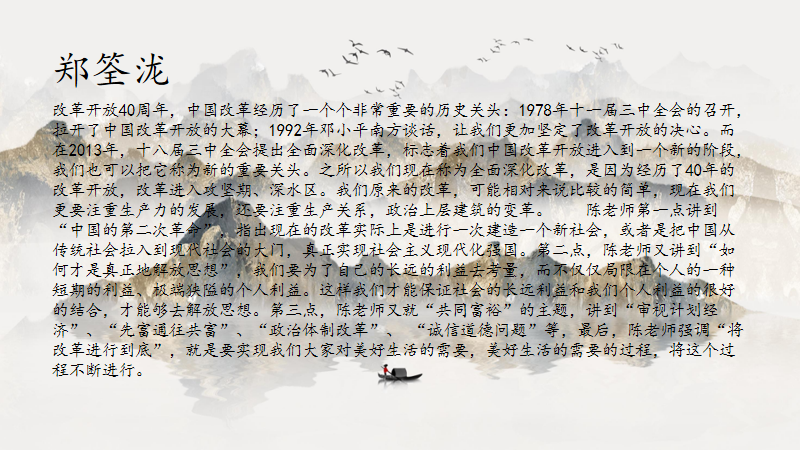 郑筌泷
改革开放40周年，中国改革经历了一个个非常重要的历史关头：1978年十一届三中全会的召开，
拉开了中国改革开放的大幕；1992年邓小平南方谈话，让我们更加坚定了改革开放的决心。而
在2013年，十八届三中全会提出全面深化改革，标志着我们中国改革开放进入到一个新的阶段，
我们也可以把它称为新的重要关头。之所以我们现在称为全面深化改革，是因为经历了40年的
改革开放，改革进入攻坚期、深水区。我们原来的改革，可能相对来说比较的简单，现在我们
更要注重生产力的发展，还要注重生产关系，政治上层建筑的变革。 陈老师第一点讲到
“中国的第二次革命”，指出现在的改革实际上是进行一次建造一个新社会，或者是把中国从
传统社会拉入到现代社会的大门，真正实现社会主义现代化强国。第二点，陈老师又讲到“如
何才是真正地解放思想”，我们要为了自己的长远的利益去考量，而不仅仅局限在个人的一种
短期的利益、极端狭隘的个人利益。这样我们才能保证社会的长远利益和我们个人利益的很好
的结合，才能够去解放思想。第三点，陈老师又就“共同富裕”的主题，讲到“审视计划经
济”、“先富通往共富”、“政治体制改革”、 “诚信道德问题”等，最后，陈老师强调“将
改革进行到底”，就是要实现我们大家对美好生活的需要，美好生活的需要的过程，将这个过
程不断进行。